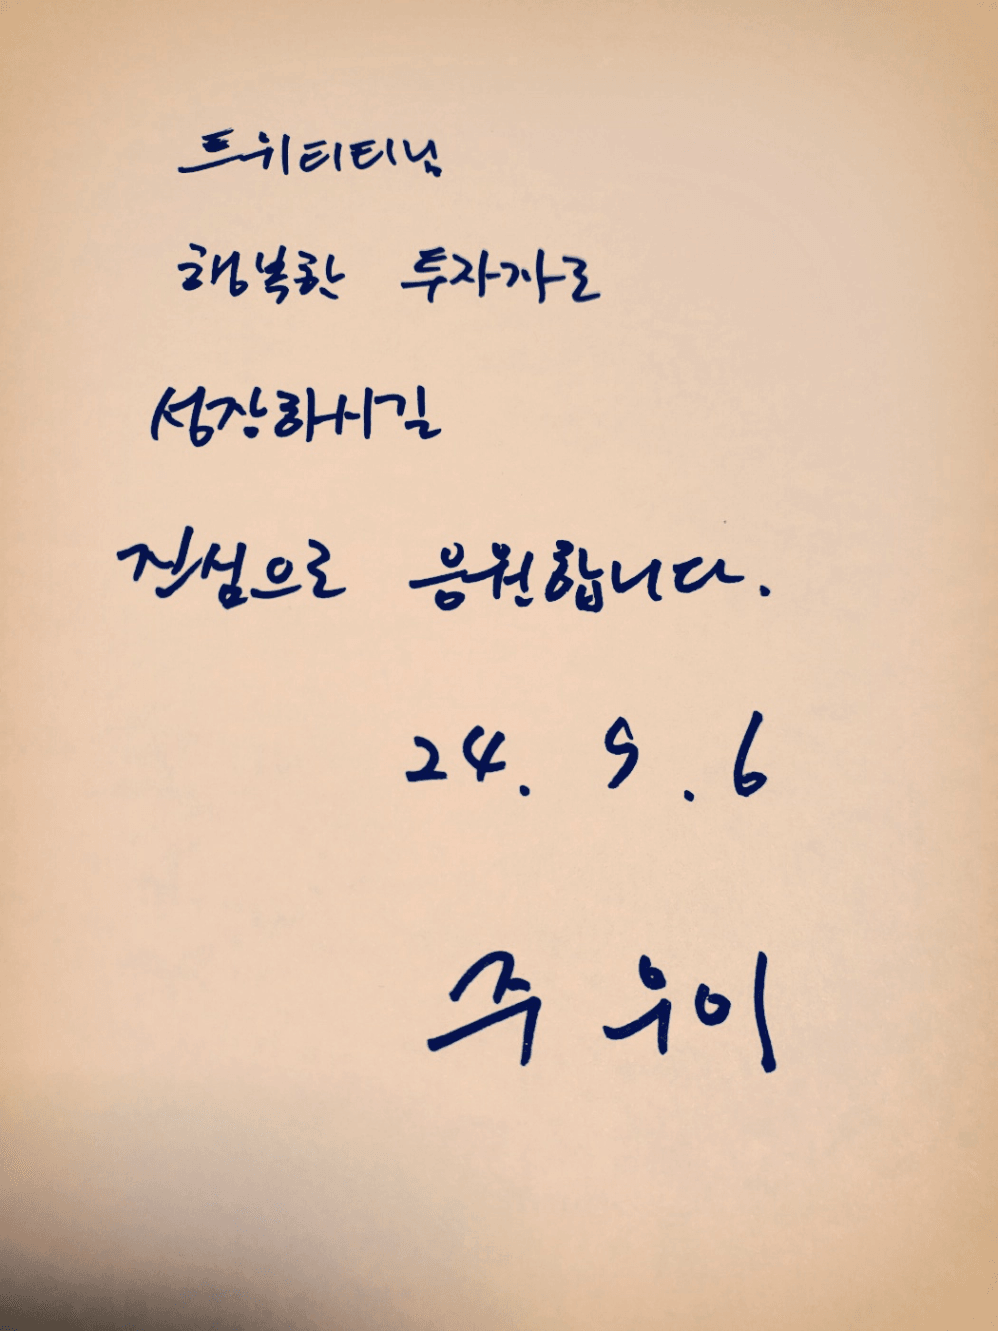 트위티티님
행복한 투자자로
성장하시길
진심으로 응원합니다.
24. 9. 6
주 우이